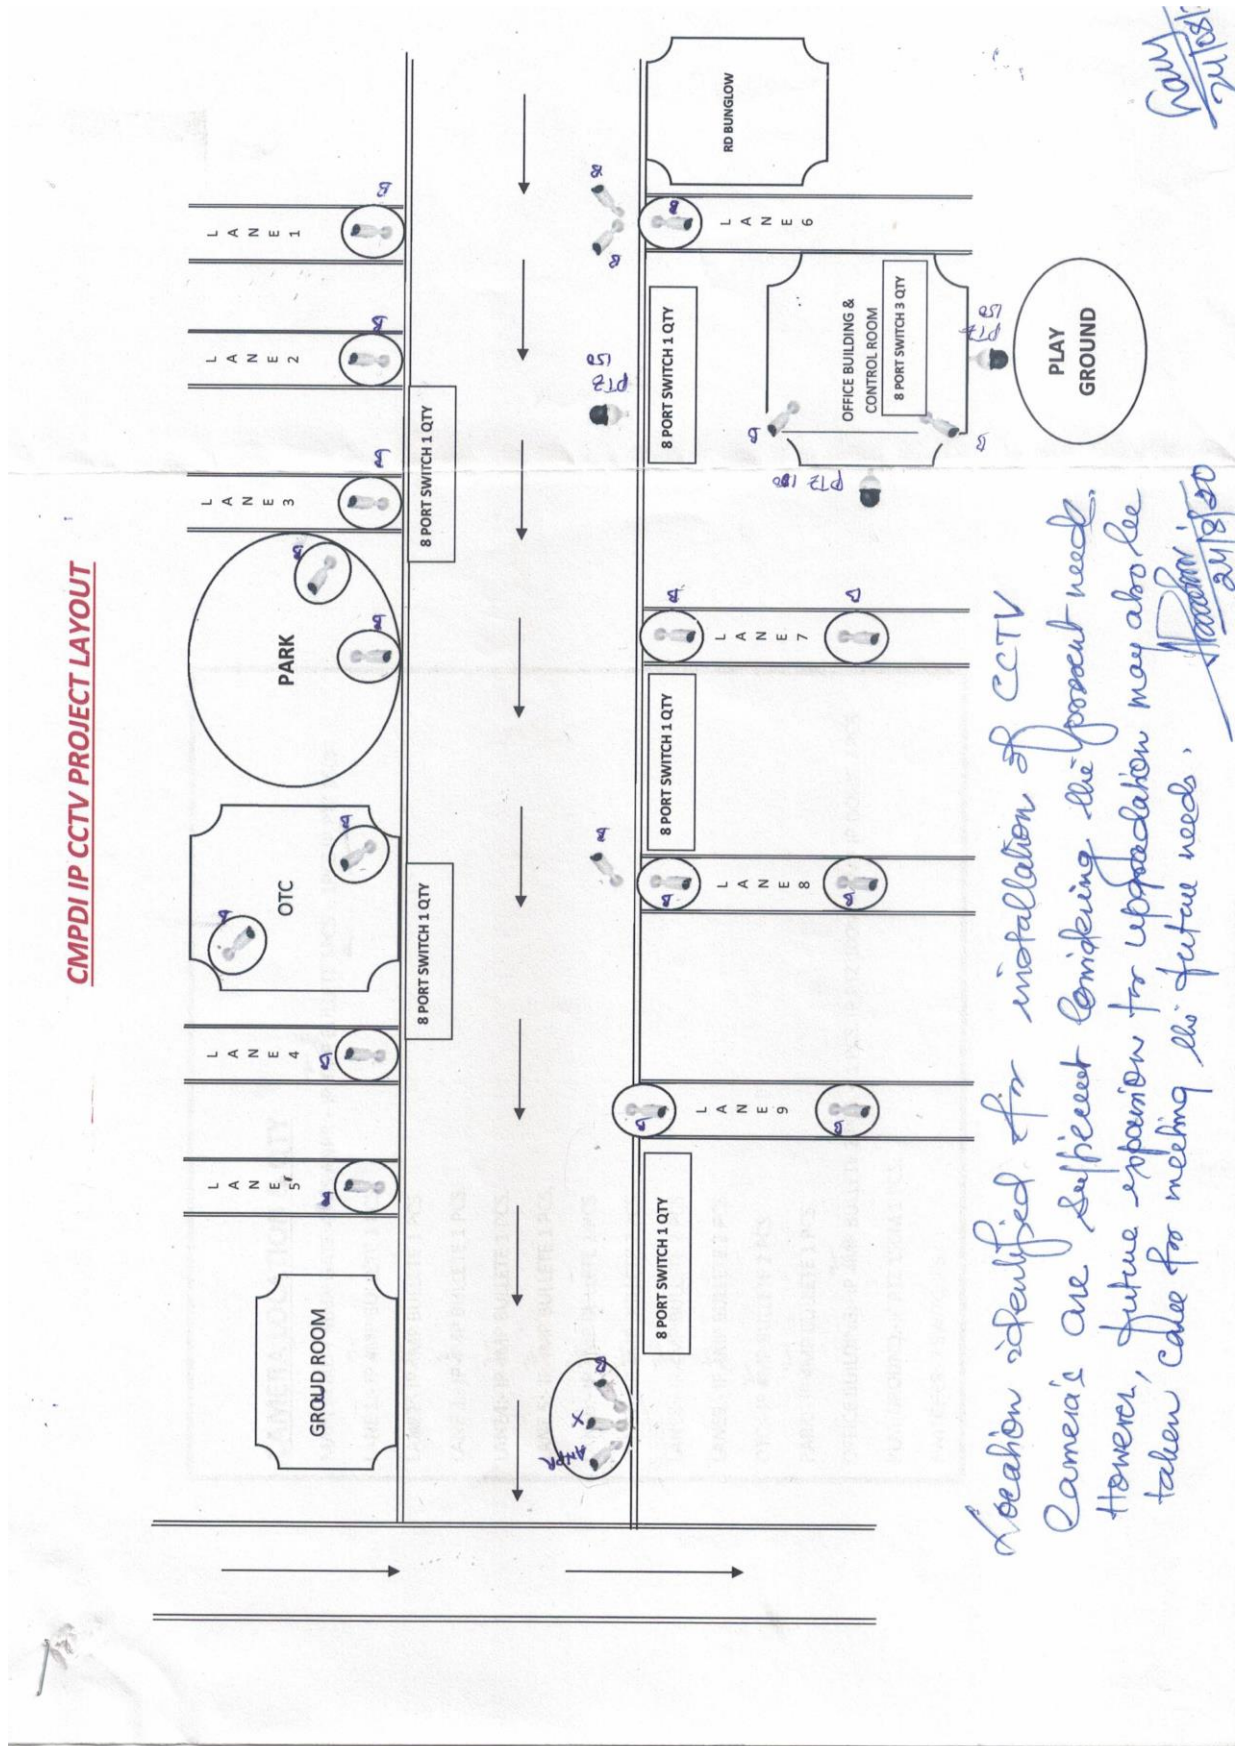 CMPDI IP CCTV PROJECT LAYOUT
GROUD ROOM
LANE 5
LANE 4
OTC
PARK
LANE 3
LANE 2
LANE 1
B
B
B
B
B
B
B
B
B
8 PORT SWITCH 1 QTY
8 PORT SWITCH 1 QTY
ANPR
X
B
B
PTZ
150
B
B
8 PORT SWITCH 1 QTY
8 PORT SWITCH 1 QTY
8 PORT SWITCH 1 QTY
LANE 9
LANE 8
LANE 7
LANE 6
B
B
B
B
B
B
B
RD BUNGLOW
OFFICE BUILDING &
CONTROL ROOM
8 PORT SWITCH 3 QTY
B
B
PTZ
PTZ
150
PLAY
GROUND
Location identified for installation of CCTV
Camera's are sufficient considering the present need.
However, future expansion for upgradation may also be
taken care for meeting the future needs.
24/8/20
24/08/